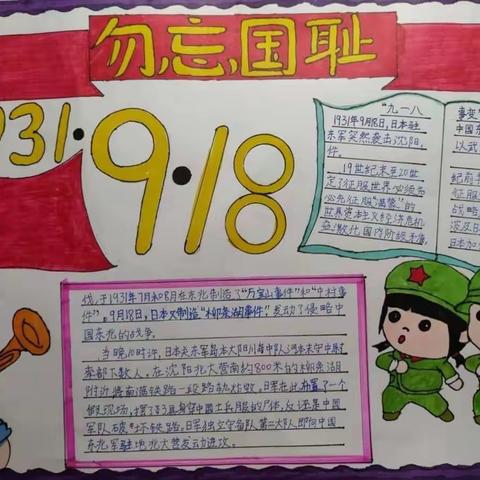 勿忘国耻
931.
9.18
"九一八
1931年9月18日,日本驻
东军突然袭击沈阳,
件。
19世纪末至20世
定,征服世界必须当
必先征服"满蒙"的
世界资本主义经济危机
益激化,国内阶级矛盾
事变"
中国东
以武
纪前
征服
战略
波及日
日本加
伐,于1931年7月和8月在东北制造了"万宝山事件"和"中村事
件"。9月18日,日本又制造"柳条湖事件",发动了侵略中
国东北的战争。
当晚10时许,日本关东军岛本大队川岛中队
奉部下数人,在沈阳北大营南约800米的柳条湖
附近将南满铁路一段路轨炸毁。日军在此布置了一个
假现场,摆了3具身穿中国士兵服的尸体,反诬是中国
军队破坏铁路。日军独立守备队第二大队即向中国
东北军驻地北大营发动进攻。